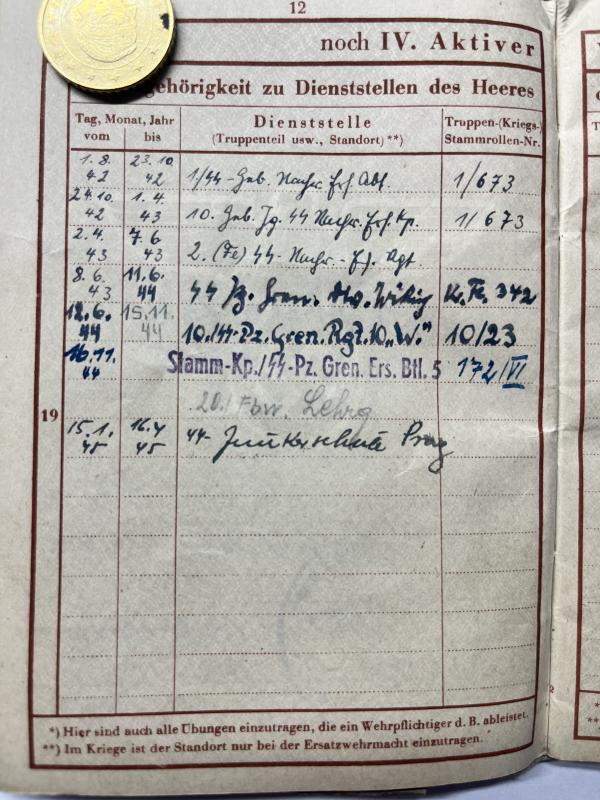 12
noch IV. Aktiver
gehörigkeit zu Dienststellen des Heeres
Tag, Monat, Jahr
vom bis
Dienststelle
(Truppenteil usw., Standort) **)
Truppen-(Kriegs-)
Stammrollen-Nr.
1.8. 42 23.10. 42 1/SS-Geb. Nachr. Ers. Abt. 1/673
24.10. 42 1.4. 43 10. Geb. Jg. SS Nachr. Ers. Kp. 1/673
2.4. 43 7.6 43 2. (Fe) SS-Nachr.-E. Rgt
8.6. 43 11.6. 44 SS Pz. Gren. Div. Wiking K.Tr. 342
12.6. 44 15.11. 44 10./SS-Pz. Gren. Rgt. 10 „W." 10/23
16.11. 44 Stamm-Kp./SS-Pz. Gren. Ers. Btl. 5 172/VI
20. Fbw. Lehrg
19
15.1. 45 16.4 45 SS-Junkerschule Prag
*) Hier sind auch alle Übungen einzutragen, die ein Wehrpflichtiger d. B. ableistet.
**) Im Kriege ist der Standort nur bei der Ersatzwehrmacht einzutragen.